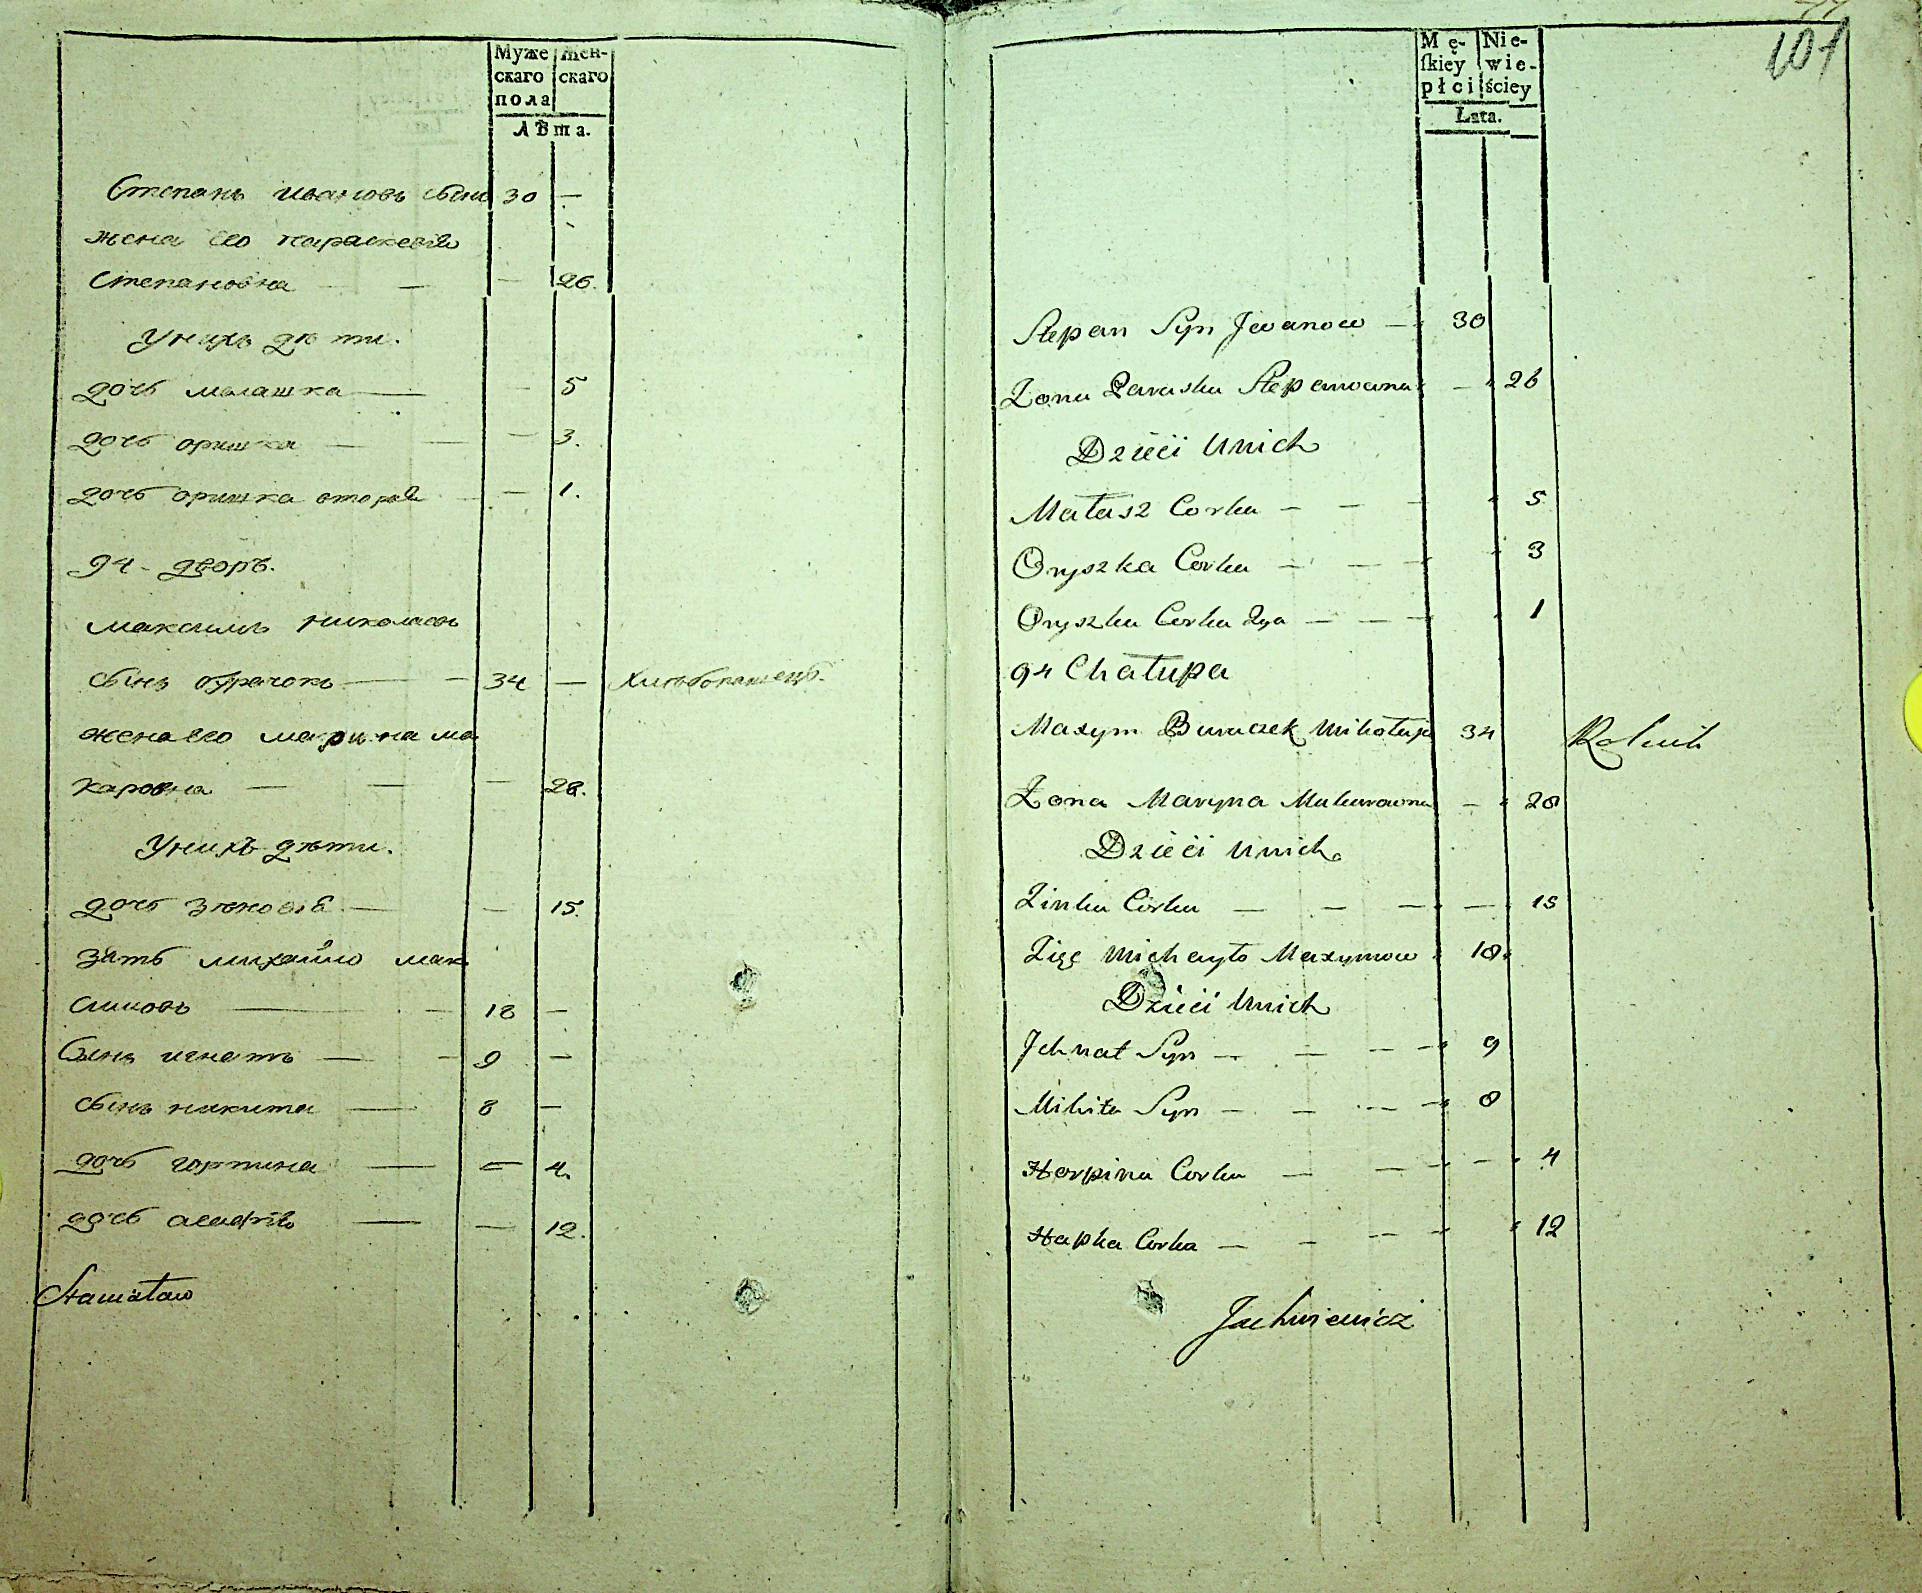 Муже
скаго
пола
Жен-
скаго
Лѣта.
Степанъ ивановъ сынъ 30 —
жена его параскевія
Степановна — — — 26.
Унихъ дѣти.
дочь малашка — — 5
дочь оришка — — — 3.
дочь оришка вторая — — 1.
94 - дворъ.
максимъ николаевъ
сынъ бурачокъ — — 34 — хлѣбопашецъ.
жена его марина ма
каровна — — — 28.
Унихъ дѣти.
дочь зѣновія — — 15.
зять михайло мак
симовъ — — 18 —
Сынъ игнатъ — — 9 —
сынъ никита — 8 —
дочь горпина — — 4.
дочь агафія — — 12.
101
Mę-
ſkiey
płci
Nie-
wie-
ściey
Lata.
Stepan Syn Jwanow — 30
Żona Paraska Stepanowna — 26
Dzieci Unich
Małasz Corka — — — 5
Oryszka Corka — — — 3
Oryszka Corka 2ga — — — 1
94 Chałupa
Maxym Buraczek Mikołaja 34 Rolnik
Żona Maryna Makarowna — 28
Dzieci Unich
Zinka Corka — — — — 15
Zięć Michayło Maxymow 18
Dzieci Unich
Jchnat Syn — — — — 9
Mikita Syn — — — — 8
Horpina Corka — — — — 4
Hapka Corka — — — — 12
Jachniewicz